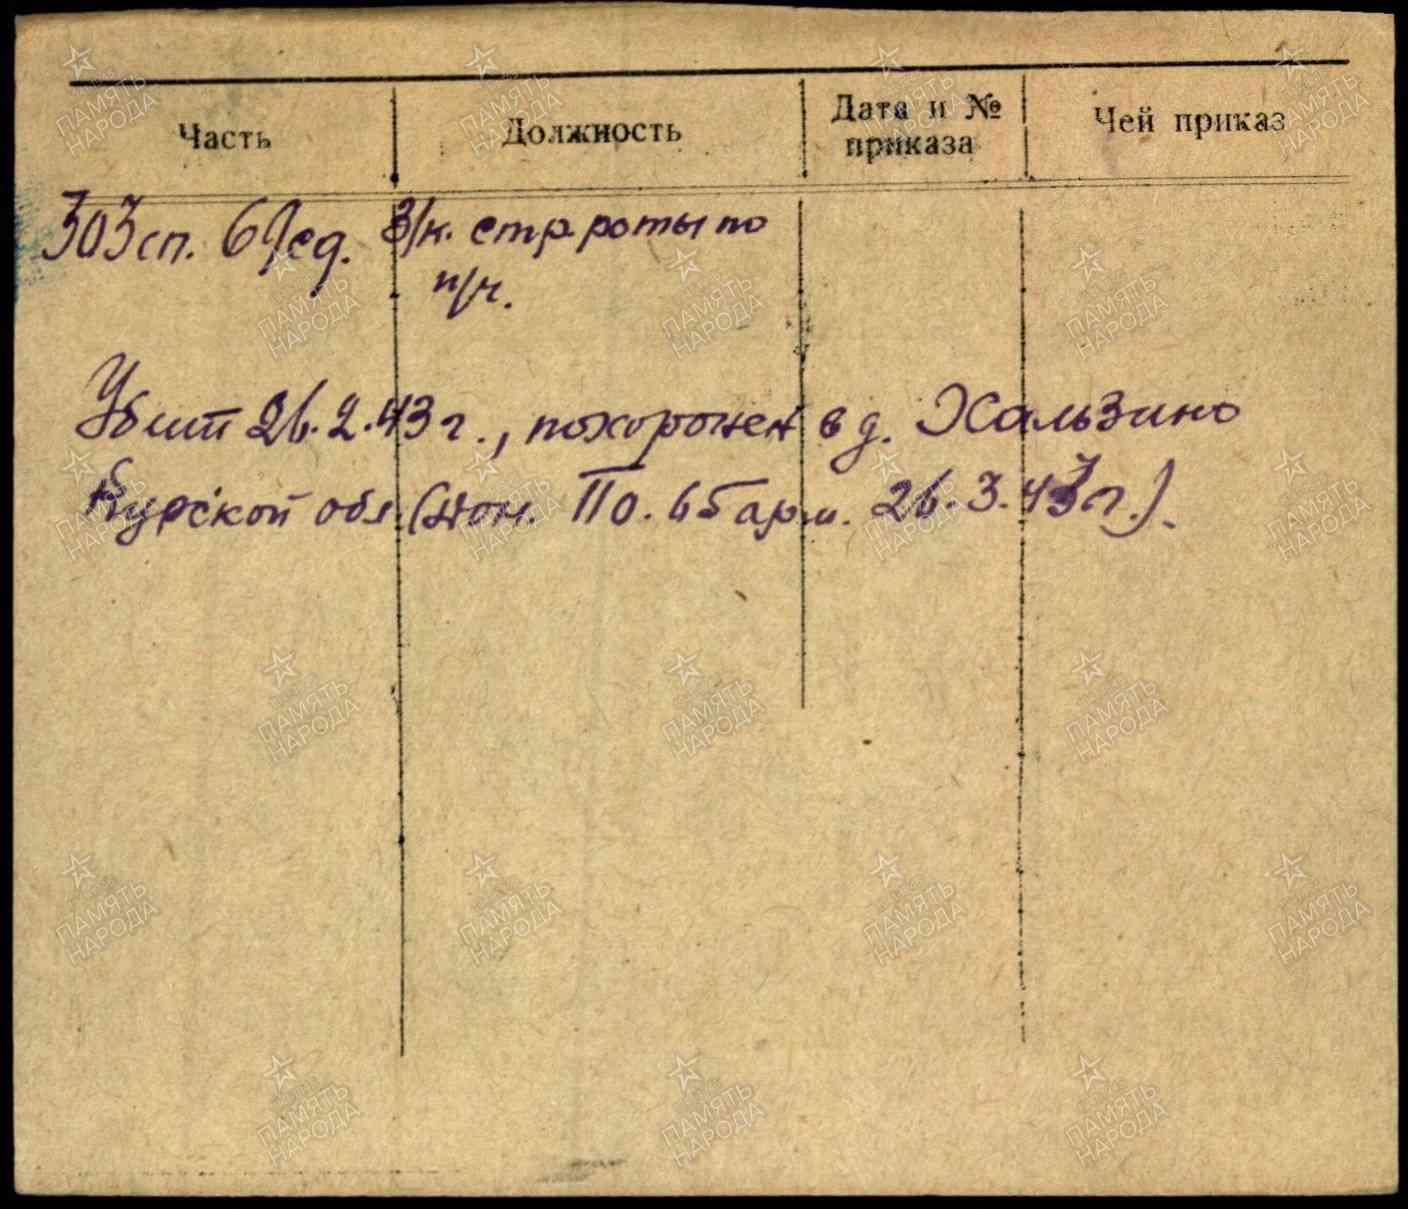 Часть Должность Дата и № приказа Чей приказ
303 сп. 69 сд. З/к. стр. роты по
п/ч.
Убит 26.2.43 г., похоронен в д. Хальзино
Курской обл. (Дон. ПО. 65 арм. 26.3.43 г.).
ПАМЯТЬ НАРОДА